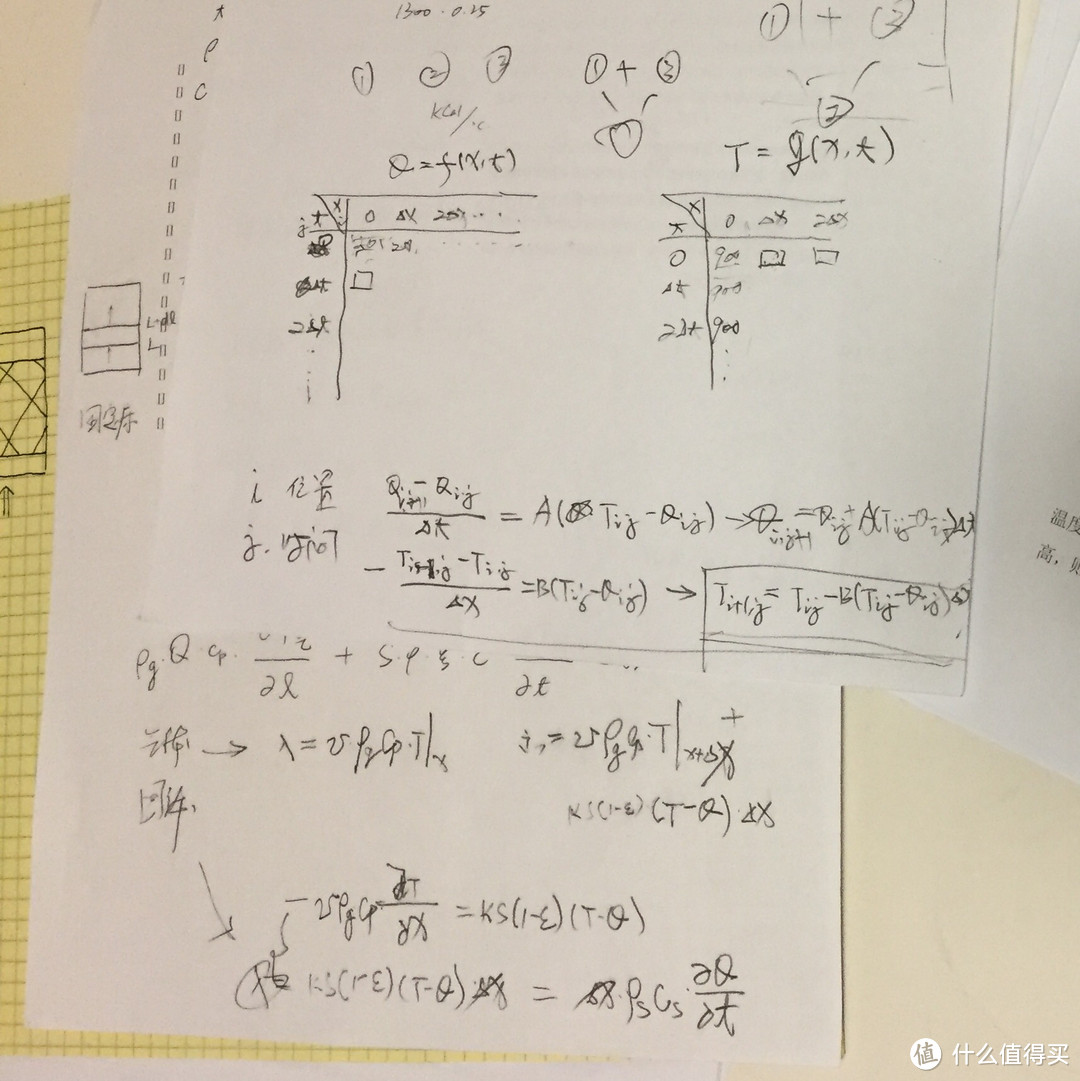 1300·0.25
t
ρ
C
① ② ③
① + ③
① + ③
②
kcal/℃
Q = f(x,t)
T = g(x,t)
x 0 Δx 2Δx ···
t
Δt
2Δt
x 0 Δx 2Δx
t
0 900
Δt 900
2Δt 900
L+dl
L
固定床
i 位置
j. 时间
(Q_{i,j+1} - Q_{ij})/Δt = A(T_{ij} - Q_{ij}) → Q_{i,j+1} = Q_{ij} + A(T_{ij} - Q_{ij})Δt
-(T_{i+1,j} - T_{i,j})/Δx = B(T_{ij} - Q_{ij}) → T_{i+1,j} = T_{ij} - B(T_{ij} - Q_{ij})Δx
ρg·Q·Cp· /∂l + S·ρ·ξ·C /∂t
气体 → 入 = vρgCp·T|x
出 = vρgCp·T|x+Δx +
KS(1-ε)(T-Q)·Δx
固体
-vρgCp ∂T/∂x = KS(1-ε)(T-Q)
KS(1-ε)(T-Q)·Δx = Δx·ρsCs·∂Q/∂t
温度
高，则
值 什么值得买